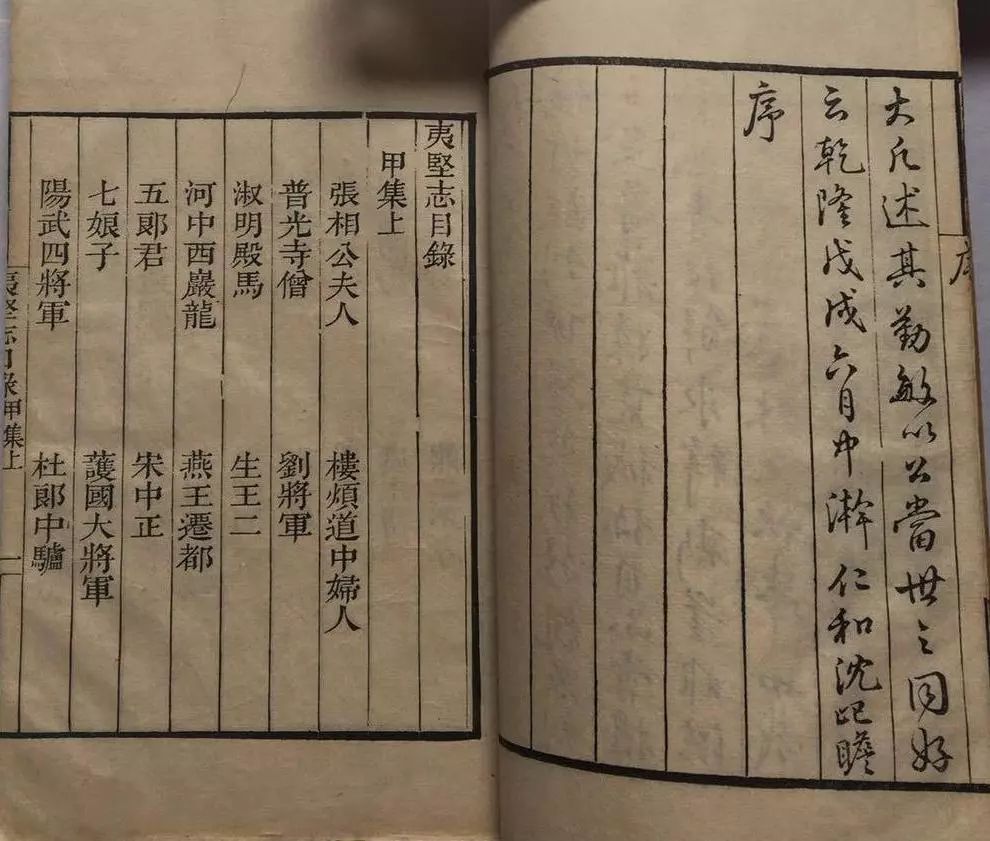 序
大凡述其勤敏以公當世之同好
云乾隆戊戌六月中澣仁和沈屺瞻
序
夷堅志目錄
甲集上
張相公夫人　樓煩道中婦人
普光寺僧　劉將軍
淑明殿馬　生王二
河中西巖龍　燕王遷都
五郎君　宋中正
七娘子　護國大將軍
陽武四將軍　杜郎中驢
夷堅志目錄甲集上　一